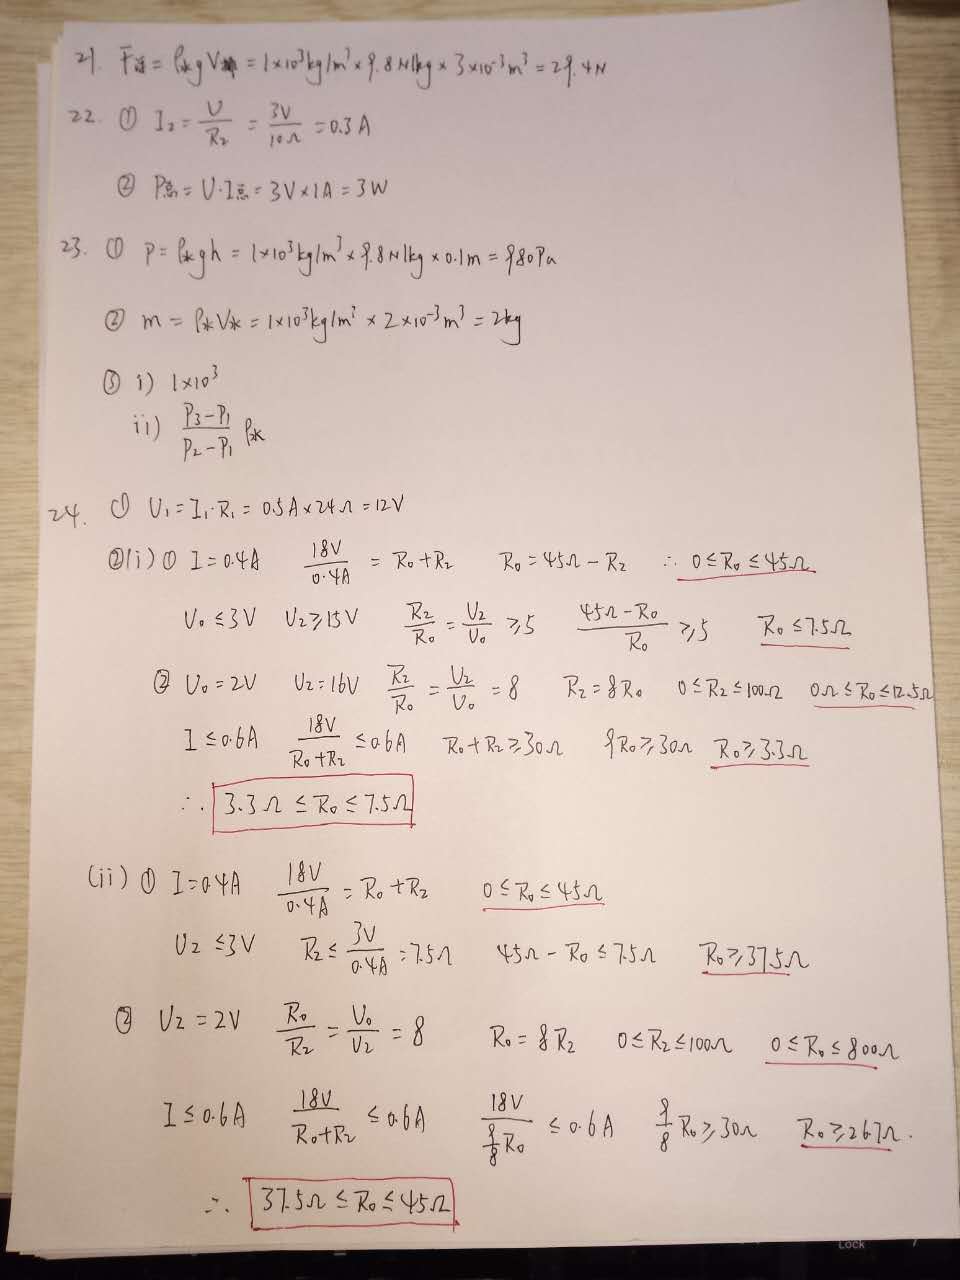 21. F浮 = ρ水gV排 = 1×10³kg/m³ × 9.8N/kg × 3×10⁻³m³ = 29.4N
22. ① I₂ = U/R₂ = 3V/10Ω = 0.3A
② P总 = U·I总 = 3V×1A = 3W
23. ① P = ρ水gh = 1×10³kg/m³ × 9.8N/kg × 0.1m = 980Pa
② m = ρ水V水 = 1×10³kg/m³ × 2×10⁻³m³ = 2kg
③ i) 1×10³
ii) (P₃-P₁)/(P₂-P₁) ρ水
24. ① U₁ = I₁·R₁ = 0.5A×24Ω = 12V
②(i) ① I = 0.4A 18V/0.4A = R₀+R₂ R₀ = 45Ω - R₂ ∴ 0≤R₀≤45Ω
U₀≤3V U₂≥15V R₂/R₀ = U₂/U₀ ≥5 (45Ω-R₀)/R₀ ≥5 R₀≤7.5Ω
② U₀=2V U₂=16V R₂/R₀ = U₂/U₀ = 8 R₂=8R₀ 0≤R₂≤100Ω 0Ω≤R₀≤12.5Ω
I≤0.6A 18V/(R₀+R₂) ≤0.6A R₀+R₂≥30Ω 9R₀≥30Ω R₀≥3.3Ω
∴ 3.3Ω ≤R₀≤7.5Ω
(ii) ① I=0.4A 18V/0.4A = R₀+R₂ 0≤R₀≤45Ω
U₂≤3V R₂≤ 3V/0.4A = 7.5Ω 45Ω-R₀≤7.5Ω R₀≥37.5Ω
② U₂=2V R₀/R₂ = U₀/U₂ = 8 R₀=8R₂ 0≤R₂≤100Ω 0≤R₀≤800Ω
I≤0.6A 18V/(R₀+R₂) ≤0.6A 18V/(9/8 R₀) ≤0.6A 9/8 R₀≥30Ω R₀≥26.7Ω.
∴ 37.5Ω≤R₀≤45Ω
Lock